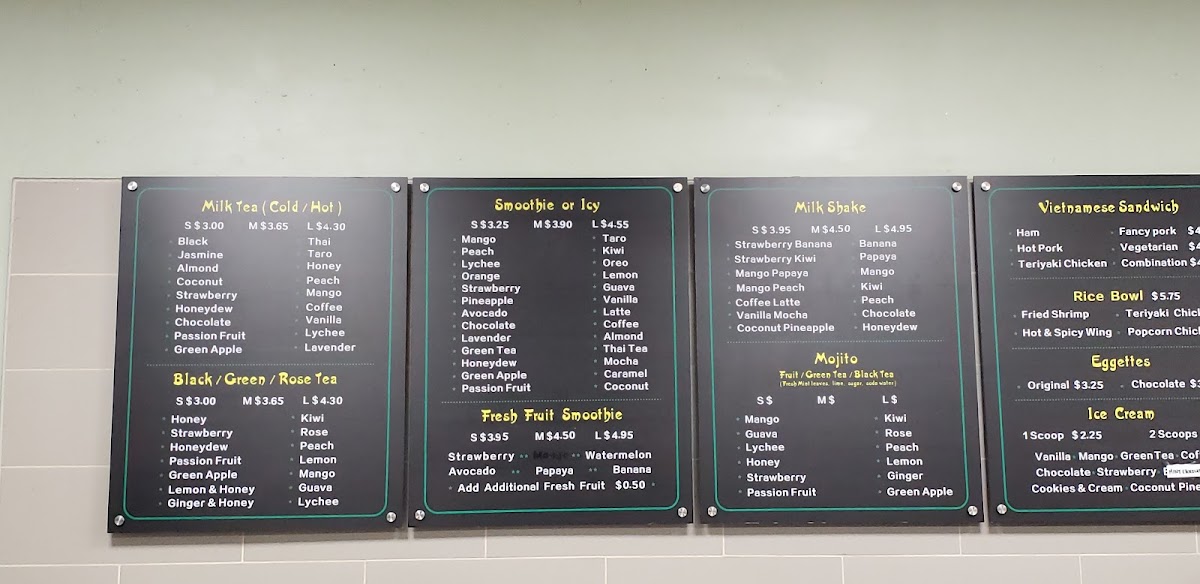 Milk Tea ( Cold / Hot )
S $ 3.00 M $ 3.65 L $ 4.30
Black Thai
Jasmine Taro
Almond Honey
Coconut Peach
Strawberry Mango
Honeydew Coffee
Chocolate Vanilla
Passion Fruit Lychee
Green Apple Lavender
Black / Green / Rose Tea
S $ 3.00 M $ 3.65 L $ 4.30
Honey Kiwi
Strawberry Rose
Honeydew Peach
Passion Fruit Lemon
Green Apple Mango
Lemon & Honey Guava
Ginger & Honey Lychee
Smoothie or Icy
S $ 3.25 M $ 3.90 L $ 4.55
Mango Taro
Peach Kiwi
Lychee Oreo
Orange Lemon
Strawberry Guava
Pineapple Vanilla
Avocado Latte
Chocolate Coffee
Lavender Almond
Green Tea Thai Tea
Honeydew Mocha
Green Apple Caramel
Passion Fruit Coconut
Fresh Fruit Smoothie
S $ 3.95 M $ 4.50 L $ 4.95
Strawberry Mango Watermelon
Avocado Papaya Banana
Add Additional Fresh Fruit $0.50
Milk Shake
S $ 3.95 M $ 4.50 L $ 4.95
Strawberry Banana Banana
Strawberry Kiwi Papaya
Mango Papaya Mango
Mango Peach Kiwi
Coffee Latte Peach
Vanilla Mocha Chocolate
Coconut Pineapple Honeydew
Mojito
Fruit / Green Tea / Black Tea
(Fresh Mint leaves, lime, sugar, soda water)
S $ M $ L $
Mango Kiwi
Guava Rose
Lychee Peach
Honey Lemon
Strawberry Ginger
Passion Fruit Green Apple
Vietnamese Sandwich
Ham Fancy pork $4
Hot Pork Vegetarian $4
Teriyaki Chicken Combination $4
Rice Bowl $ 5.75
Fried Shrimp Teriyaki Chic
Hot & Spicy Wing Popcorn Chic
Eggettes
Original $ 3.25 Chocolate $3
Ice Cream
1 Scoop $ 2.25 2 Scoops
Vanilla Mango Green Tea Cof
Chocolate Strawberry
Cookies & Cream Coconut Pine